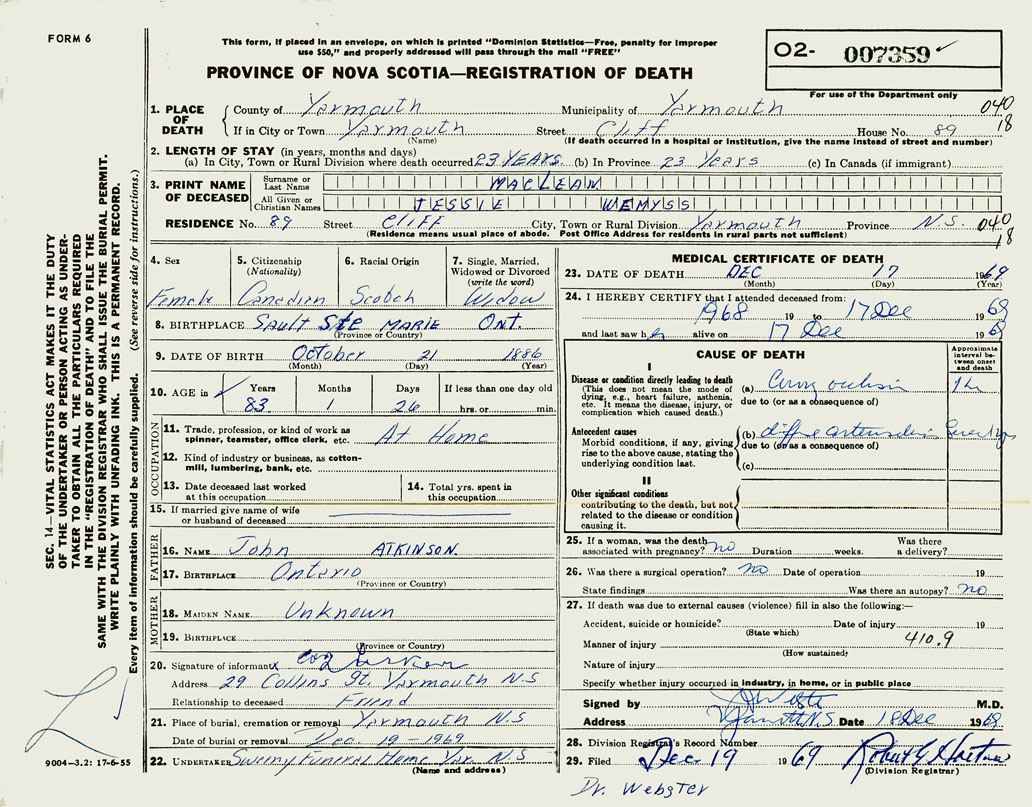 FORM 6
This form, if placed in an envelope, on which is printed "Dominion Statistics—Free, penalty for improper
use $50," and properly addressed will pass through the mail "FREE"
PROVINCE OF NOVA SCOTIA—REGISTRATION OF DEATH
O2- 007359
For use of the Department only
1. PLACE OF DEATH County of Yarmouth Municipality of Yarmouth 040
If in City or Town Yarmouth Street Cliff House No. 89 18
(Name) (If death occurred in a hospital or institution, give the name instead of street and number)
2. LENGTH OF STAY (in years, months and days)
(a) In City, Town or Rural Division where death occurred 23 YEARS (b) In Province 23 Years (c) In Canada (if immigrant)
3. PRINT NAME OF DECEASED
Surname or Last Name MACLEAN
All Given or Christian Names JESSIE WEMYSS
RESIDENCE No. 89 Street CLIFF City, Town or Rural Division Yarmouth Province N.S. 040
(Residence means usual place of abode. Post Office Address for residents in rural parts not sufficient) 18
4. Sex Female
5. Citizenship (Nationality) Canadian
6. Racial Origin Scotch
7. Single, Married, Widowed or Divorced (write the word) Widow
8. BIRTHPLACE SAULT Ste MARIE Ont.
(Province or Country)
9. DATE OF BIRTH October 21 1886
(Month) (Day) (Year)
10. AGE in Years Months Days If less than one day old
83 1 26 hrs. or min.
OCCUPATION
11. Trade, profession, or kind of work as
spinner, teamster, office clerk, etc. At Home
12. Kind of industry or business, as cotton-
mill, lumbering, bank, etc.
13. Date deceased last worked at this occupation
14. Total yrs. spent in this occupation
15. If married give name of wife
or husband of deceased
FATHER
16. NAME John ATKINSON.
17. BIRTHPLACE Ontario
(Province or Country)
MOTHER
18. MAIDEN NAME Unknown
19. BIRTHPLACE
(Province or Country)
20. Signature of informant X
Address 29 Collins St. Yarmouth N.S
Relationship to deceased Friend
21. Place of burial, cremation or removal Yarmouth N.S
Date of burial or removal Dec. 19 - 1969
22. UNDERTAKER Sweeny Funeral Home Yar. N.S
(Name and address)
MEDICAL CERTIFICATE OF DEATH
23. DATE OF DEATH DEC 17 1969
(Month) (Day) (Year)
24. I HEREBY CERTIFY that I attended deceased from:
1968 19 to 17 Dec 1969
and last saw her alive on 17 Dec 1969
CAUSE OF DEATH
Approximate interval be-tween onset and death
I
Disease or condition directly leading to death (a)
(This does not mean the mode of
dying, e.g., heart failure, asthenia,
etc. It means the disease, injury, or
complication which caused death.)
due to (or as a consequence of)
Antecedent causes (b)
Morbid conditions, if any, giving
rise to the above cause, stating the
underlying condition last.
due to (or as a consequence of)
(c)
II
Other significant conditions
contributing to the death, but not
related to the disease or condition
causing it.
25. If a woman, was the death
associated with pregnancy? no Duration weeks. Was there a delivery?
26. Was there a surgical operation? no Date of operation 19
State findings Was there an autopsy? no
27. If death was due to external causes (violence) fill in also the following:—
Accident, suicide or homicide? Date of injury 19
(State which)
Manner of injury 410.9
(How sustained)
Nature of injury
Specify whether injury occurred in industry, in home, or in public place
Signed by M.D.
Address Yarmouth N.S Date 18 Dec 1969
28. Division Registrar's Record Number
29. Filed Dec 19 1969
(Division Registrar)
Dr. Webster
SEC. 14—VITAL STATISTICS ACT MAKES IT THE DUTY
OF THE UNDERTAKER OR PERSON ACTING AS UNDER-
TAKER TO OBTAIN ALL THE PARTICULARS REQUIRED
IN THE "REGISTRATION OF DEATH" AND TO FILE THE
SAME WITH THE DIVISION REGISTRAR WHO SHALL ISSUE THE BURIAL PERMIT.
WRITE PLAINLY WITH UNFADING INK. THIS IS A PERMANENT RECORD.
Every item of information should be carefully supplied. (See reverse side for instructions.)
9004—3.2: 17-6-55